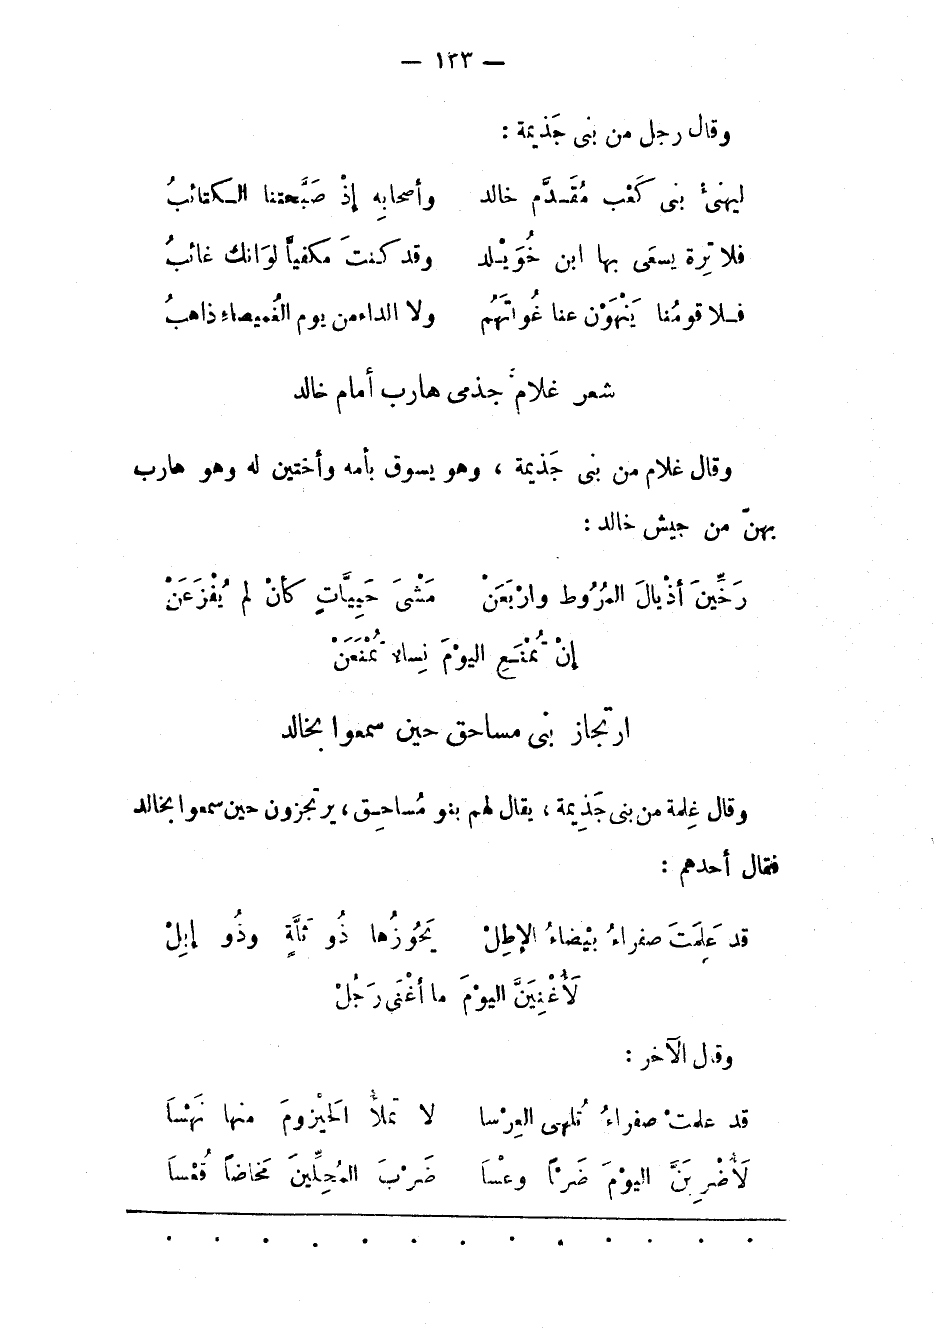 — ١٢٣ —
وقال رجل من بنى جَذيمة :
ليهنئْ بنى كَعْب مُقَدَّم خالد وأصحابِه إذْ صَبَّحتنا الكتائبُ
فلا تِرة يسعَى بها ابن خُوَيْلد وقد كنتَ مكفياًّ لوَانك غائبُ
فلا قومُنا يَنْهَوْن عنا غُواتَهُم ولا الداء من يوم الغُميصاء ذاهبُ
شعر غلام جذمى هارب أمام خالد
وقال غلام من بنى جَذيمة ، وهو يسوق بأمه وأختين له وهو هارب
بهنّ من جيش خالد :
رَخِّينَ أذْيالَ المُرُوط وارْبَعَنْ مَشْىَ حَيِيَّاتٍ كأنْ لم يُفْزَعَنْ
إنْ تُمْنَعِ اليوْمَ نِساء تُمْنَعَنْ
ارتجاز بنى مساحق حين سمعوا بخالد
وقال غِلمة من بنى جَذِيمة ، يقال لهم بنو مُساحِق ، يرتجزون حين سمعوا بخالد
فقال أحدهم :
قد عَلِمَتَ صفراءُ بيْضاءُ الإطِلْ يَحُوزُها ذُو ثَلَّةٍ وذُو إبِلْ
لَأُغْنِيَنَّ اليوْمَ ما أغْنَى رَجُلْ
وقال الآخر :
قد علمتْ صفراءُ تُلهِى العِرْسا لا تملأُ الحَيْزومَ منها نَهْسَا
لَأَضْرِبَنَّ اليوْمَ ضَرْبًا وعْسَا ضَرْبَ المُحِلِّينَ مَخاضاً قُعْساَ